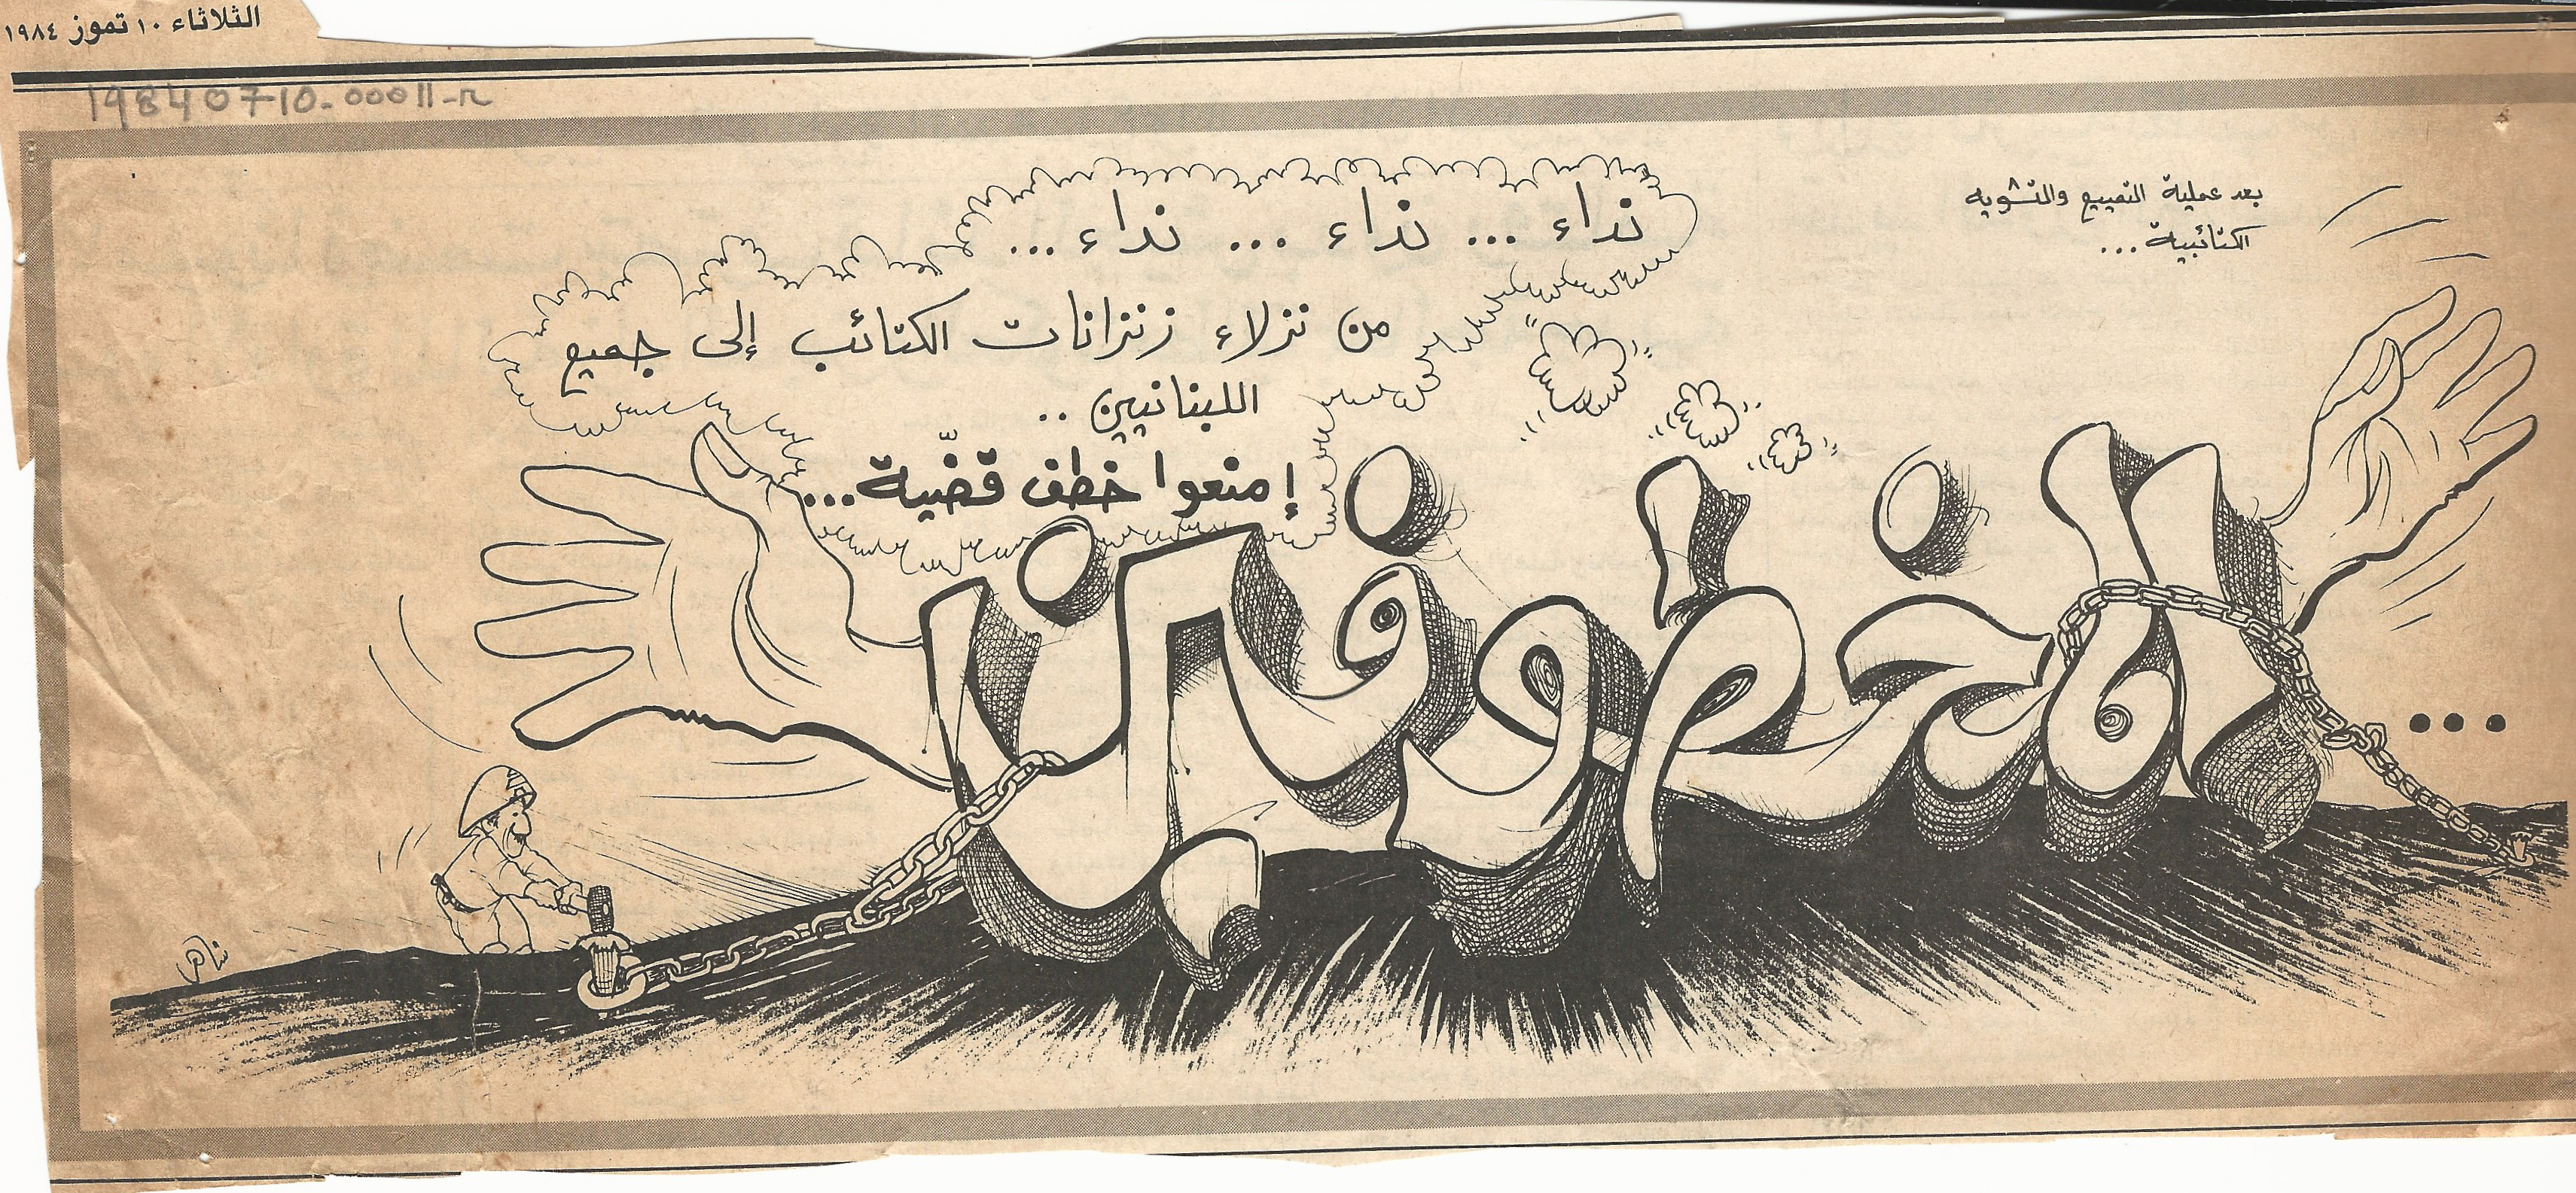 الثلاثاء ١٠ تموز ١٩٨٤
19840710-00011-r
بعد عملية التمييع والتشويه
الكتائبية...
نداء ... نداء ... نداء ...
من نزلاء زنزانات الكتائب إلى جميع
اللبنانيين ..
إمنعوا خطف قضّية...
المخطوفين...